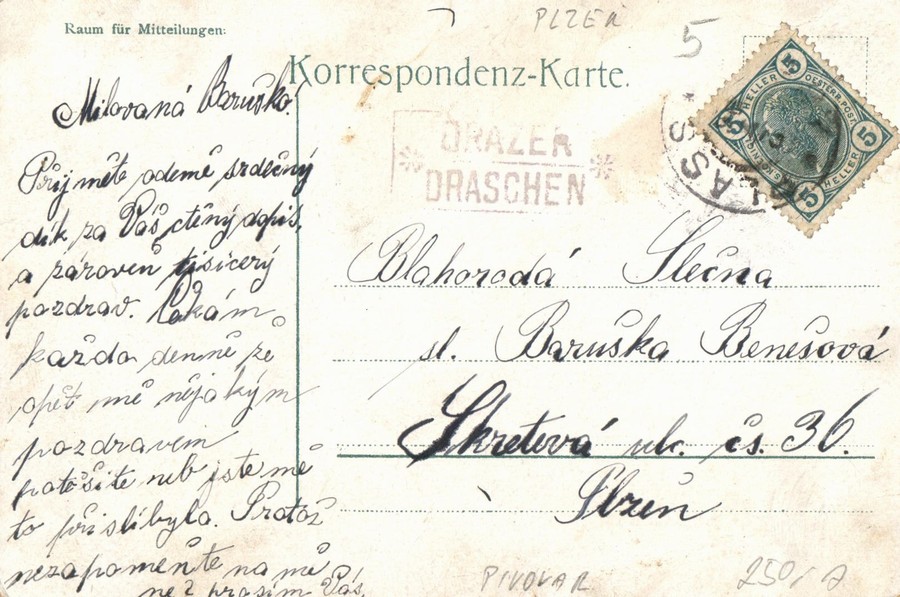 PLZEŇ
5
Raum für Mitteilungen:
Korrespondenz-Karte.
Milovaná Baruško!
Přijměte odemě srdečný
dík za Váš ctěný dopis,
a zároveň tisícerý
pozdrav. Čekám
každo denně že
opět mě nějakým
pozdravem
potěšíte neb jste mě
to přislíbyla. Protož
nezapomeňte na mě
než prosím Vás.
DRAZEN
DRASCHEN
5 HELLER
OESTERR. POST.
5 HELLER
Blahorodá Slečna
sl. Baruška Benešová
Skretová ul. čs. 36.
Plzeň
PIVOVAR
250